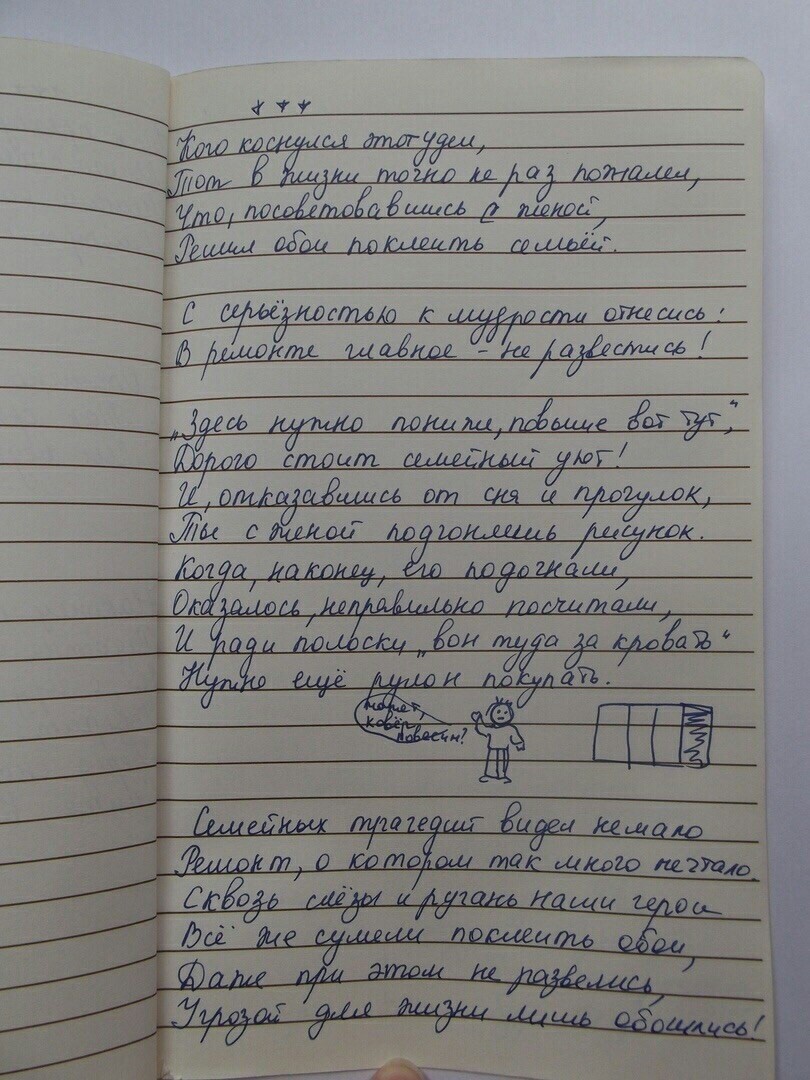 ***
Кого коснулся этот удел,
Тот в жизни точно не раз пожалел,
Что, посоветовавшись с женой,
Решил обои поклеить семьёй.
С серьёзностью к мудрости отнесись:
В ремонте главное - не развестись!
„Здесь нужно пониже, повыше вот тут“,
Дорого стоит семейный уют!
И, отказавшись от сня и прогулок,
Ты с женой подгоняешь рисунок.
Когда, наконец, его подогнали,
Оказалось, неправильно посчитали,
И ради полоски „вон туда за кровать“
Нужно ещё рулон покупать.
может,
ковёр
повесим?
Семейных трагедий видел немало
Ремонт, о котором так много мечтало.
Сквозь слёзы и ругань наши герои
Всё же сумели поклеить обои,
Даже при этом не развелись,
Угрозой для жизни лишь обошлись!